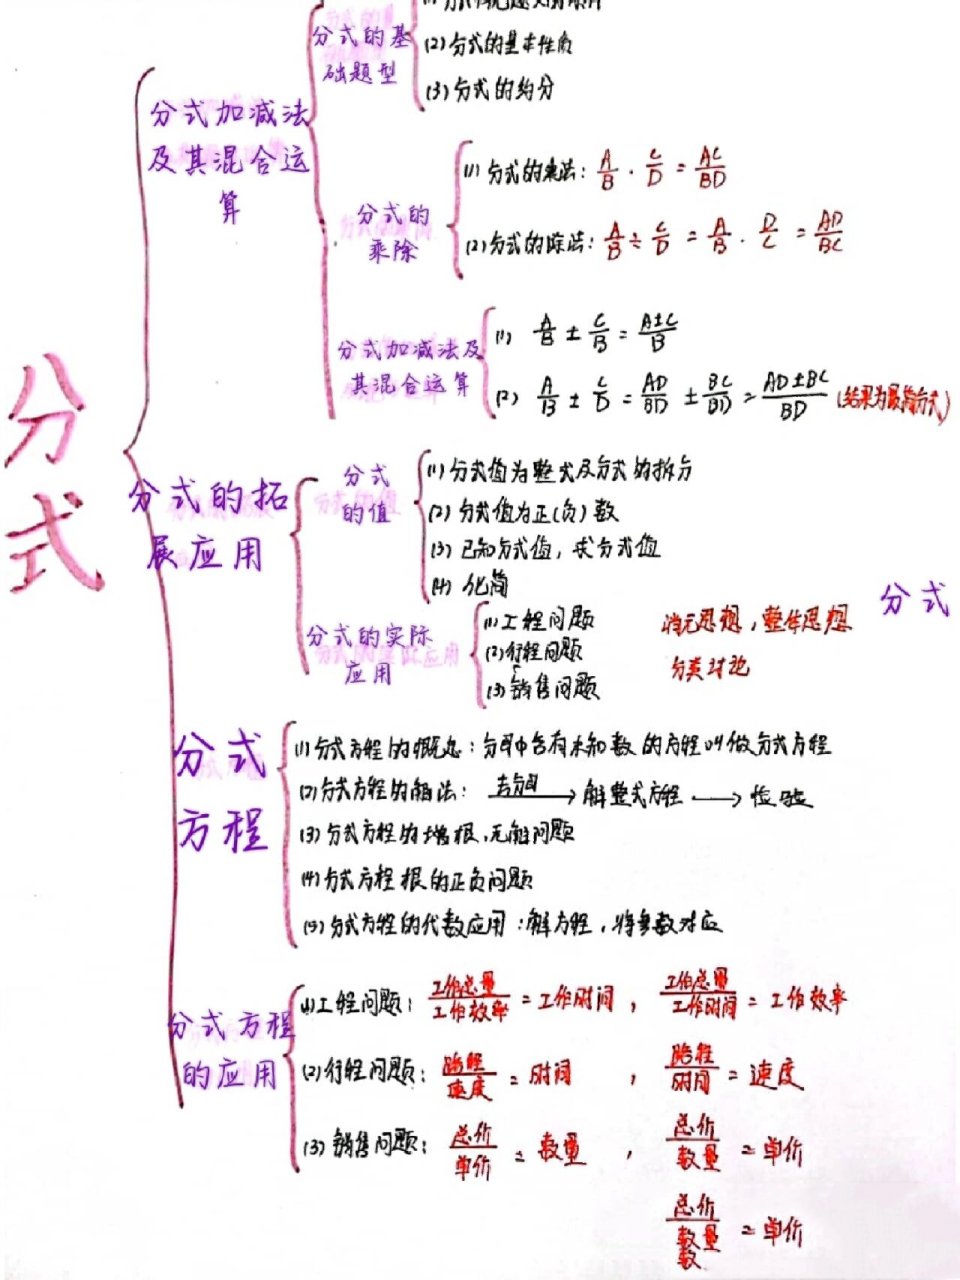 分式
分式加减法
及其混合运
算
分式的基
础题型
(2)分式的基本性质
(3)分式的约分
分式的
乘除
(1)分式的乘法: A/B · C/D = AC/BD
(2)分式的除法: A/B ÷ C/D = A/B · D/C = AD/BC
分式加减法及
其混合运算
(1) A/B ± C/B = A±C/B
(2) A/B ± C/D = AD/BD ± BC/BD = AD±BC/BD (结果为最简分式)
分式的拓
展应用
分式
的值
(1)分式值为整式及分式的拆分
(2)分式值为正(负)数
(3)已知分式值,求分式值
(4)化简
分式的实际
应用
(1)工程问题
(2)行程问题
(3)销售问题
消元思想,整体思想
分类讨论
分式
分式
方程
(1)分式方程的概念:分母中含有未知数的方程叫做分式方程
(2)分式方程的解法: 去分母→解整式方程→检验
(3)分式方程的增根,无解问题
(4)分式方程根的正负问题
(5)分式方程的代数应用:解方程,将参数对应
分式方程
的应用
(1)工程问题: 工作总量/工作效率 = 工作时间, 工作总量/工作时间 = 工作效率
(2)行程问题: 路程/速度 = 时间, 路程/时间 = 速度
(3)销售问题: 总价/单价 = 数量, 总价/数量 = 单价
总价/数量 = 单价
数